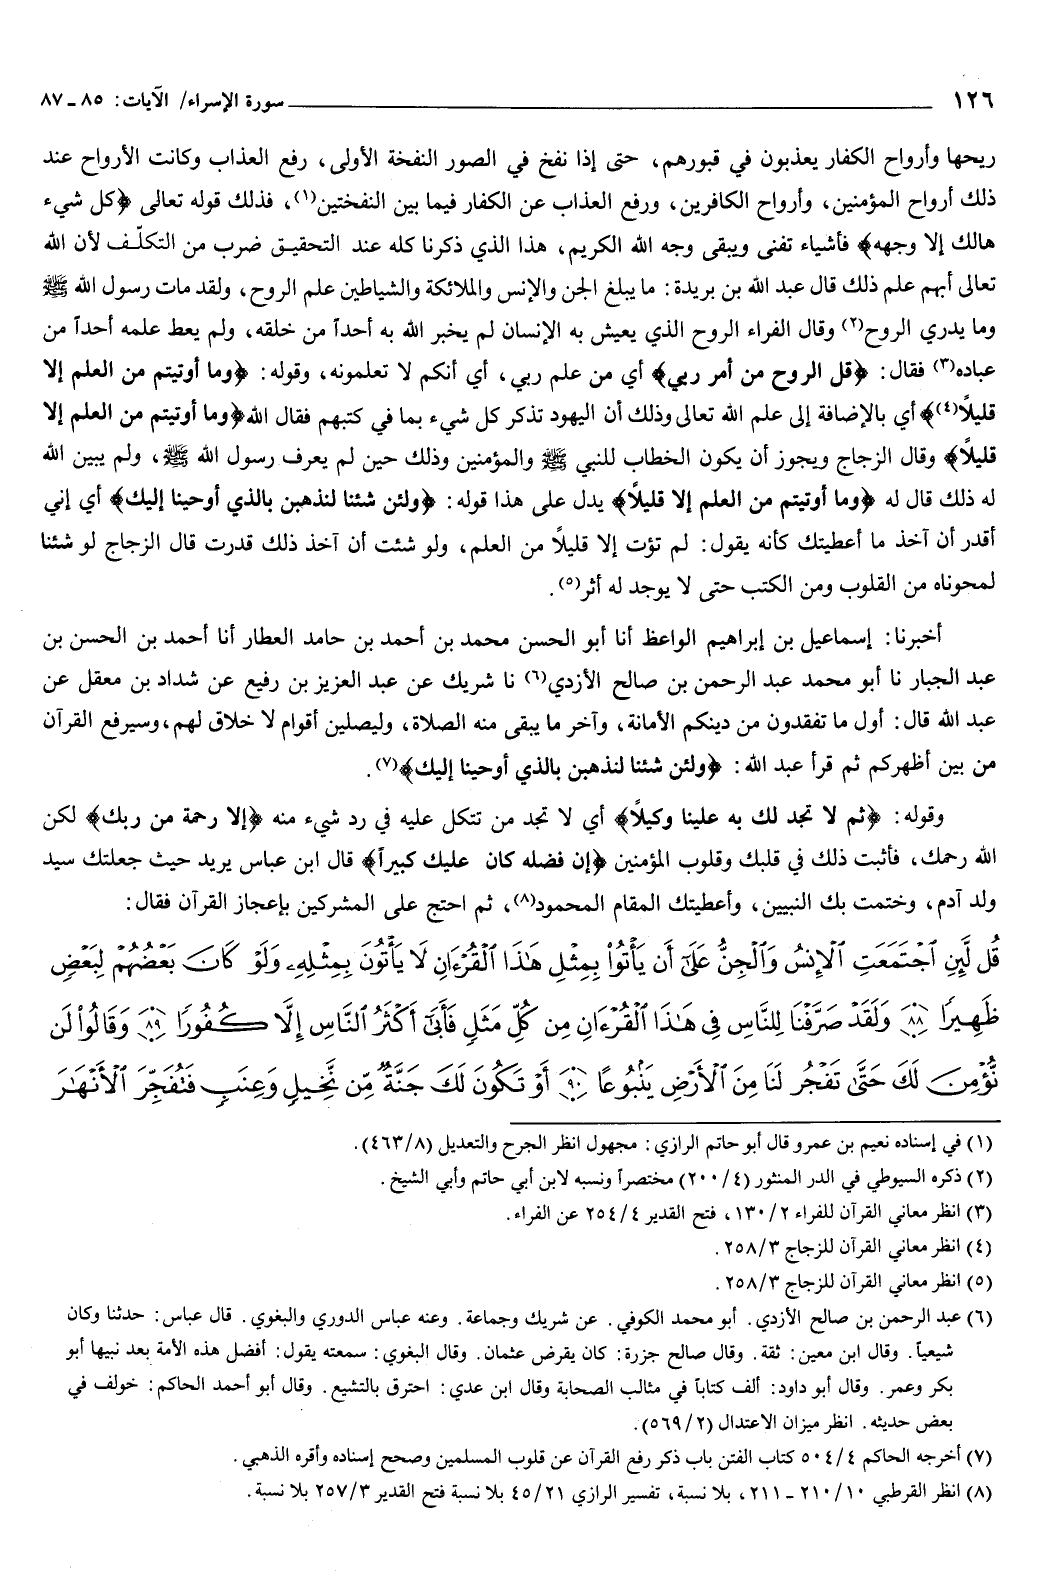 ١٢٦ سورة الإسراء/ الآيات: ٨٥ ـ ٨٧
ريحها وأرواح الكفار يعذبون في قبورهم، حتى إذا نفخ في الصور النفخة الأولى، رفع العذاب وكانت الأرواح عند
ذلك أرواح المؤمنين، وأرواح الكافرين، ورفع العذاب عن الكفار فيما بين النفختين(١)، فذلك قوله تعالى ﴿كل شيء
هالك إلا وجهه﴾ فأشياء تفنى ويبقى وجه الله الكريم، هذا الذي ذكرنا كله عند التحقيق ضرب من التكلّف لأن الله
تعالى أبهم علم ذلك قال عبد الله بن بريدة: ما يبلغ الجن والإنس والملائكة والشياطين علم الروح، ولقد مات رسول الله ﷺ
وما يدري الروح(٢) وقال الفراء الروح الذي يعيش به الإنسان لم يخبر الله به أحداً من خلقه، ولم يعط علمه أحداً من
عباده(٣) فقال: ﴿قل الروح من أمر ربي﴾ أي من علم ربي، أي أنكم لا تعلمونه، وقوله: ﴿وما أوتيتم من العلم إلا
قليلاً(٤)﴾ أي بالإضافة إلى علم الله تعالى وذلك أن اليهود تذكر كل شيء بما في كتبهم فقال الله ﴿وما أوتيتم من العلم إلا
قليلاً﴾ وقال الزجاج ويجوز أن يكون الخطاب للنبي ﷺ والمؤمنين وذلك حين لم يعرف رسول الله ﷺ، ولم يبين الله
له ذلك قال له ﴿وما أوتيتم من العلم إلا قليلاً﴾ يدل على هذا قوله: ﴿ولئن شئنا لنذهبن بالذي أوحينا إليك﴾ أي إني
أقدر أن آخذ ما أعطيتك كأنه يقول: لم تؤت إلا قليلاً من العلم، ولو شئت أن آخذ ذلك قدرت قال الزجاج لو شئنا
لمحوناه من القلوب ومن الكتب حتى لا يوجد له أثر(٥).
أخبرنا: إسماعيل بن إبراهيم الواعظ أنا أبو الحسن محمد بن أحمد بن حامد العطار أنا أحمد بن الحسن بن
عبد الجبار نا أبو محمد عبد الرحمن بن صالح الأزدي(٦) نا شريك عن عبد العزيز بن رفيع عن شداد بن معقل عن
عبد الله قال: أول ما تفقدون من دينكم الأمانة، وآخر ما يبقى منه الصلاة، وليصلين أقوام لا خلاق لهم، وسيرفع القرآن
من بين أظهركم ثم قرأ عبد الله: ﴿ولئن شئنا لنذهبن بالذي أوحينا إليك﴾(٧).
وقوله: ﴿ثم لا تجد لك به علينا وكيلاً﴾ أي لا تجد من تتكل عليه في رد شيء منه ﴿إلا رحمة من ربك﴾ لكن
الله رحمك، فأثبت ذلك في قلبك وقلوب المؤمنين ﴿إن فضله كان عليك كبيراً﴾ قال ابن عباس يريد حيث جعلتك سيد
ولد آدم، وختمت بك النبيين، وأعطيتك المقام المحمود(٨)، ثم احتج على المشركين بإعجاز القرآن فقال:
قُل لَّئِنِ ٱجْتَمَعَتِ ٱلْإِنسُ وَٱلْجِنُّ عَلَىٰٓ أَن يَأْتُوا۟ بِمِثْلِ هَٰذَا ٱلْقُرْءَانِ لَا يَأْتُونَ بِمِثْلِهِۦ وَلَوْ كَانَ بَعْضُهُمْ لِبَعْضٍ
ظَهِيرًا ٨٨ وَلَقَدْ صَرَّفْنَا لِلنَّاسِ فِى هَٰذَا ٱلْقُرْءَانِ مِن كُلِّ مَثَلٍ فَأَبَىٰٓ أَكْثَرُ ٱلنَّاسِ إِلَّا كُفُورًا ٨٩ وَقَالُوا۟ لَن
نُّؤْمِنَ لَكَ حَتَّىٰ تَفْجُرَ لَنَا مِنَ ٱلْأَرْضِ يَنۢبُوعًا ٩٠ أَوْ تَكُونَ لَكَ جَنَّةٌ مِّن نَّخِيلٍ وَعِنَبٍ فَتُفَجِّرَ ٱلْأَنْهَٰرَ
(١) في إسناده نعيم بن عمرو قال أبو حاتم الرازي: مجهول انظر الجرح والتعديل (٤٦٣/٨).
(٢) ذكره السيوطي في الدر المنثور (٢٠٠/٤) مختصراً ونسبه لابن أبي حاتم وأبي الشيخ.
(٣) انظر معاني القرآن للفراء ١٣٠/٢، فتح القدير ٢٥٤/٤ عن الفراء.
(٤) انظر معاني القرآن للزجاج ٢٥٨/٣.
(٥) انظر معاني القرآن للزجاج ٢٥٨/٣.
(٦) عبد الرحمن بن صالح الأزدي. أبو محمد الكوفي. عن شريك وجماعة. وعنه عباس الدوري والبغوي. قال عباس: حدثنا وكان
شيعياً. وقال ابن معين: ثقة. وقال صالح جزرة: كان يقرض عثمان. وقال البغوي: سمعته يقول: أفضل هذه الأمة بعد نبيها أبو
بكر وعمر. وقال أبو داود: ألف كتاباً في مثالب الصحابة وقال ابن عدي: احترق بالتشيع. وقال أبو أحمد الحاكم: خولف في
بعض حديثه. انظر ميزان الاعتدال (٥٦٩/٢).
(٧) أخرجه الحاكم ٥٠٤/٤ كتاب الفتن باب ذكر رفع القرآن عن قلوب المسلمين وصحح إسناده وأقره الذهبي.
(٨) انظر القرطبي ٢١٠/١٠ ـ ٢١١، بلا نسبة، تفسير الرازي ٤٥/٢١ بلا نسبة فتح القدير ٢٥٧/٣ بلا نسبة.